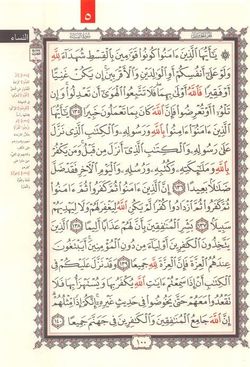 ٥
النساء
يَٰٓأَيُّهَا ٱلَّذِينَ ءَامَنُوا۟ كُونُوا۟ قَوَّٰمِينَ بِٱلْقِسْطِ شُهَدَآءَ لِلَّهِ
وَلَوْ عَلَىٰٓ أَنفُسِكُمْ أَوِ ٱلْوَٰلِدَيْنِ وَٱلْأَقْرَبِينَ إِن يَكُنْ غَنِيًّا
أَوْ فَقِيرًا فَٱللَّهُ أَوْلَىٰ بِهِمَا فَلَا تَتَّبِعُوا۟ ٱلْهَوَىٰٓ أَن تَعْدِلُوا۟ وَإِن
تَلْوُۥٓا۟ أَوْ تُعْرِضُوا۟ فَإِنَّ ٱللَّهَ كَانَ بِمَا تَعْمَلُونَ خَبِيرًا ١٣٥
يَٰٓأَيُّهَا ٱلَّذِينَ ءَامَنُوٓا۟ ءَامِنُوا۟ بِٱللَّهِ وَرَسُولِهِۦ وَٱلْكِتَٰبِ ٱلَّذِى نَزَّلَ
عَلَىٰ رَسُولِهِۦ وَٱلْكِتَٰبِ ٱلَّذِىٓ أَنزَلَ مِن قَبْلُ وَمَن يَكْفُرْ
بِٱللَّهِ وَمَلَٰٓئِكَتِهِۦ وَكُتُبِهِۦ وَرُسُلِهِۦ وَٱلْيَوْمِ ٱلْءَاخِرِ فَقَدْ ضَلَّ
ضَلَٰلًۢا بَعِيدًا ١٣٦ إِنَّ ٱلَّذِينَ ءَامَنُوا۟ ثُمَّ كَفَرُوا۟ ثُمَّ ءَامَنُوا۟
ثُمَّ كَفَرُوا۟ ثُمَّ ٱزْدَادُوا۟ كُفْرًا لَّمْ يَكُنِ ٱللَّهُ لِيَغْفِرَ لَهُمْ وَلَا لِيَهْدِيَهُمْ
سَبِيلًۢا ١٣٧ بَشِّرِ ٱلْمُنَٰفِقِينَ بِأَنَّ لَهُمْ عَذَابًا أَلِيمًا ١٣٨ ٱلَّذِينَ
يَتَّخِذُونَ ٱلْكَٰفِرِينَ أَوْلِيَآءَ مِن دُونِ ٱلْمُؤْمِنِينَ أَيَبْتَغُونَ
عِندَهُمُ ٱلْعِزَّةَ فَإِنَّ ٱلْعِزَّةَ لِلَّهِ جَمِيعًا ١٣٩ وَقَدْ نَزَّلَ عَلَيْكُمْ فِى
ٱلْكِتَٰبِ أَنْ إِذَا سَمِعْتُمْ ءَايَٰتِ ٱللَّهِ يُكْفَرُ بِهَا وَيُسْتَهْزَأُ بِهَا فَلَا
تَقْعُدُوا۟ مَعَهُمْ حَتَّىٰ يَخُوضُوا۟ فِى حَدِيثٍ غَيْرِهِۦٓ إِنَّكُمْ إِذًا مِّثْلُهُمْ
إِنَّ ٱللَّهَ جَامِعُ ٱلْمُنَٰفِقِينَ وَٱلْكَٰفِرِينَ فِى جَهَنَّمَ جَمِيعًا ١٤٠
١٠٠